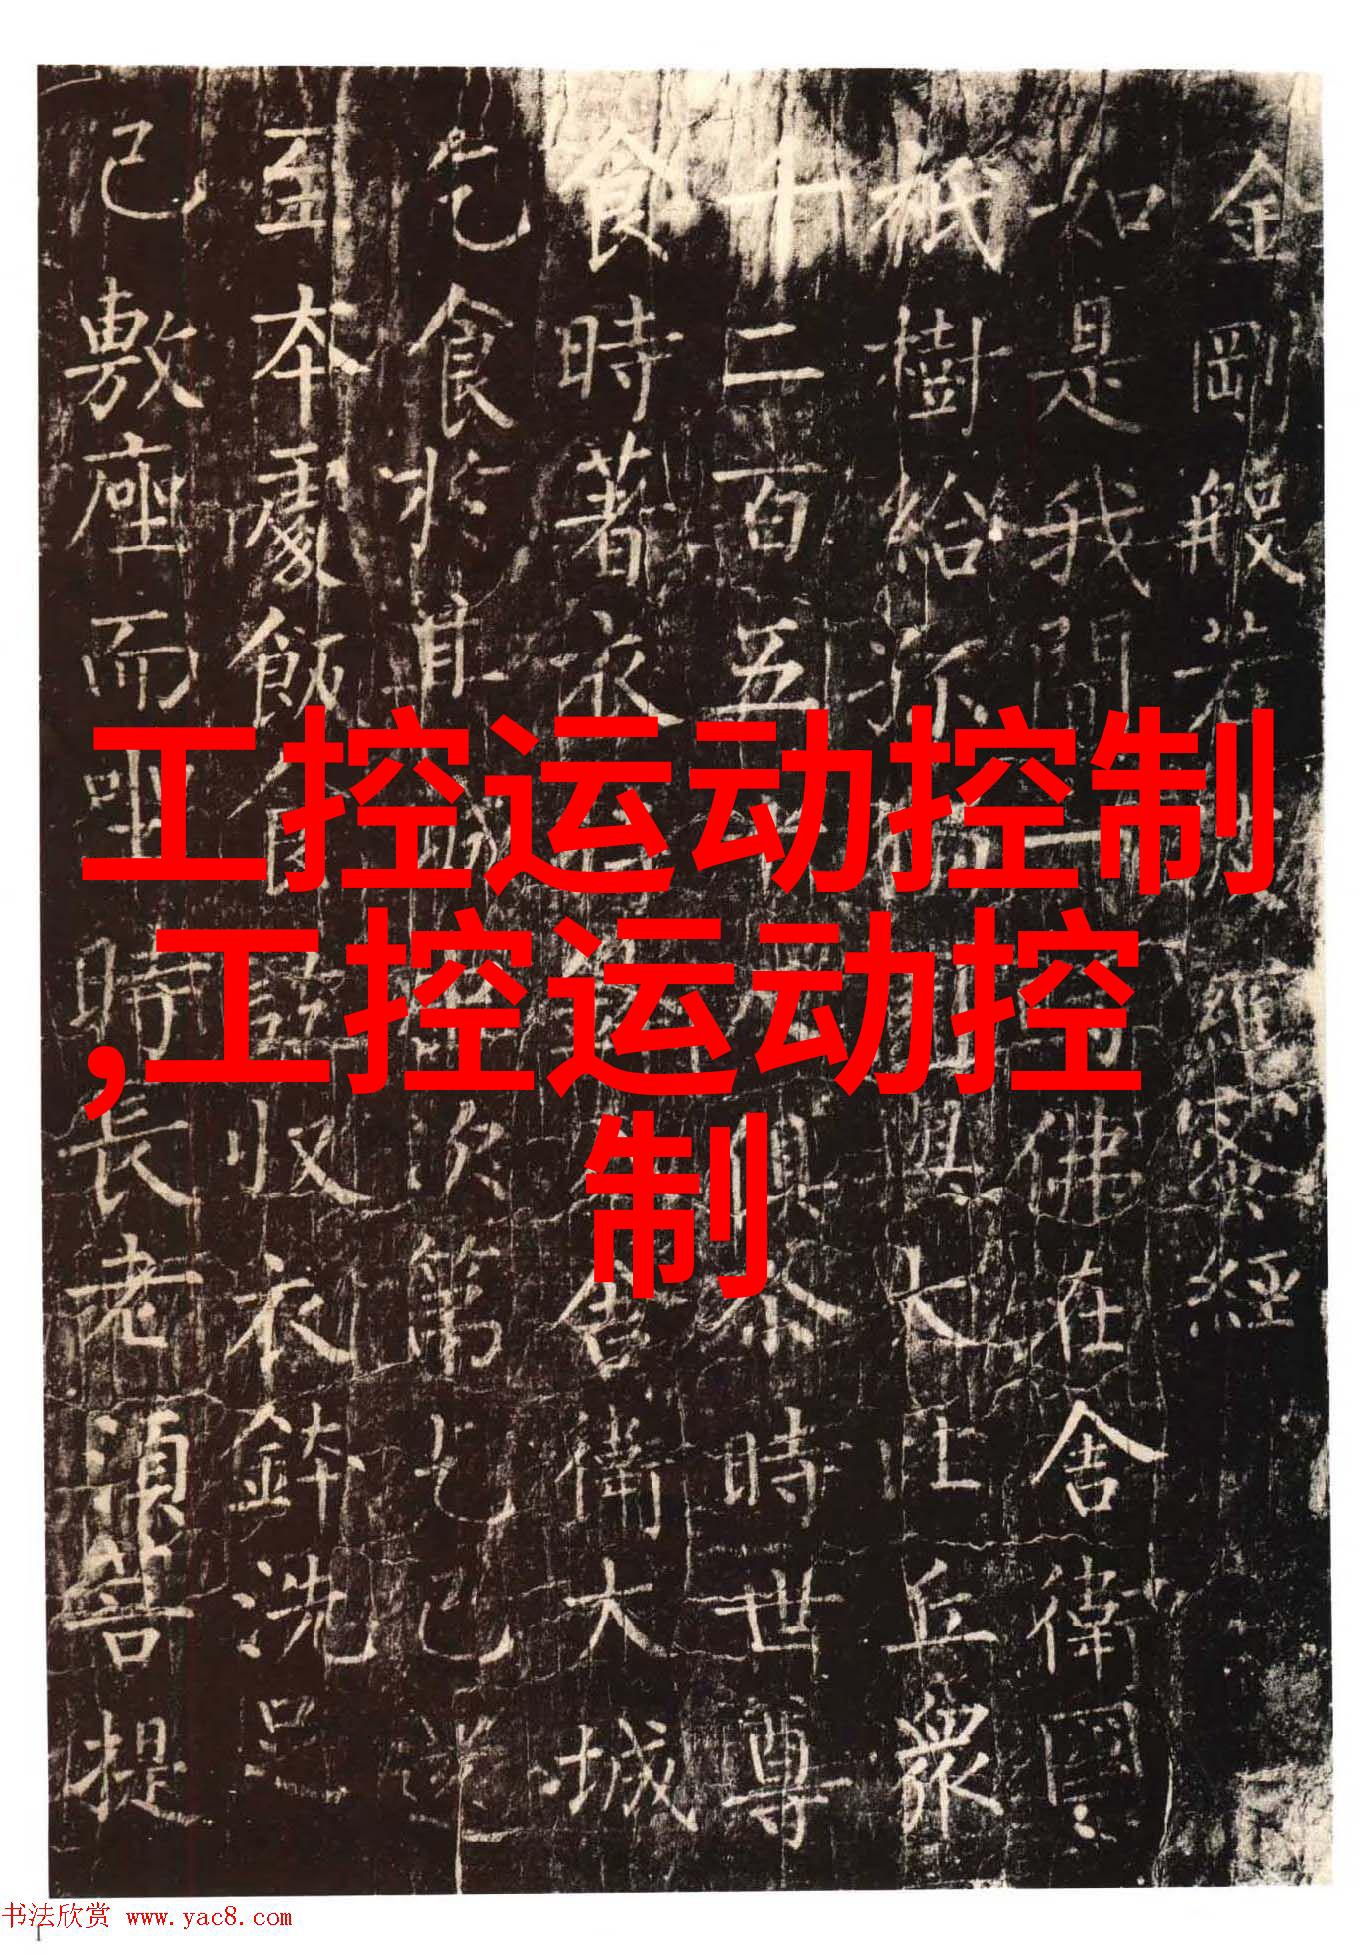 金剛般若波羅蜜經
如是我聞一時佛在舍衛國
祇樹給孤獨園與大比丘衆
千二百五十人俱尒時世尊
食時著衣持鉢入舍衛大城
乞食於其城中次第乞已還
至本處飯食訖收衣鉢洗足
已敷座而坐時長老須菩提
工控运动控制
,工控运动控
制
书法欣赏 www.yac8.com